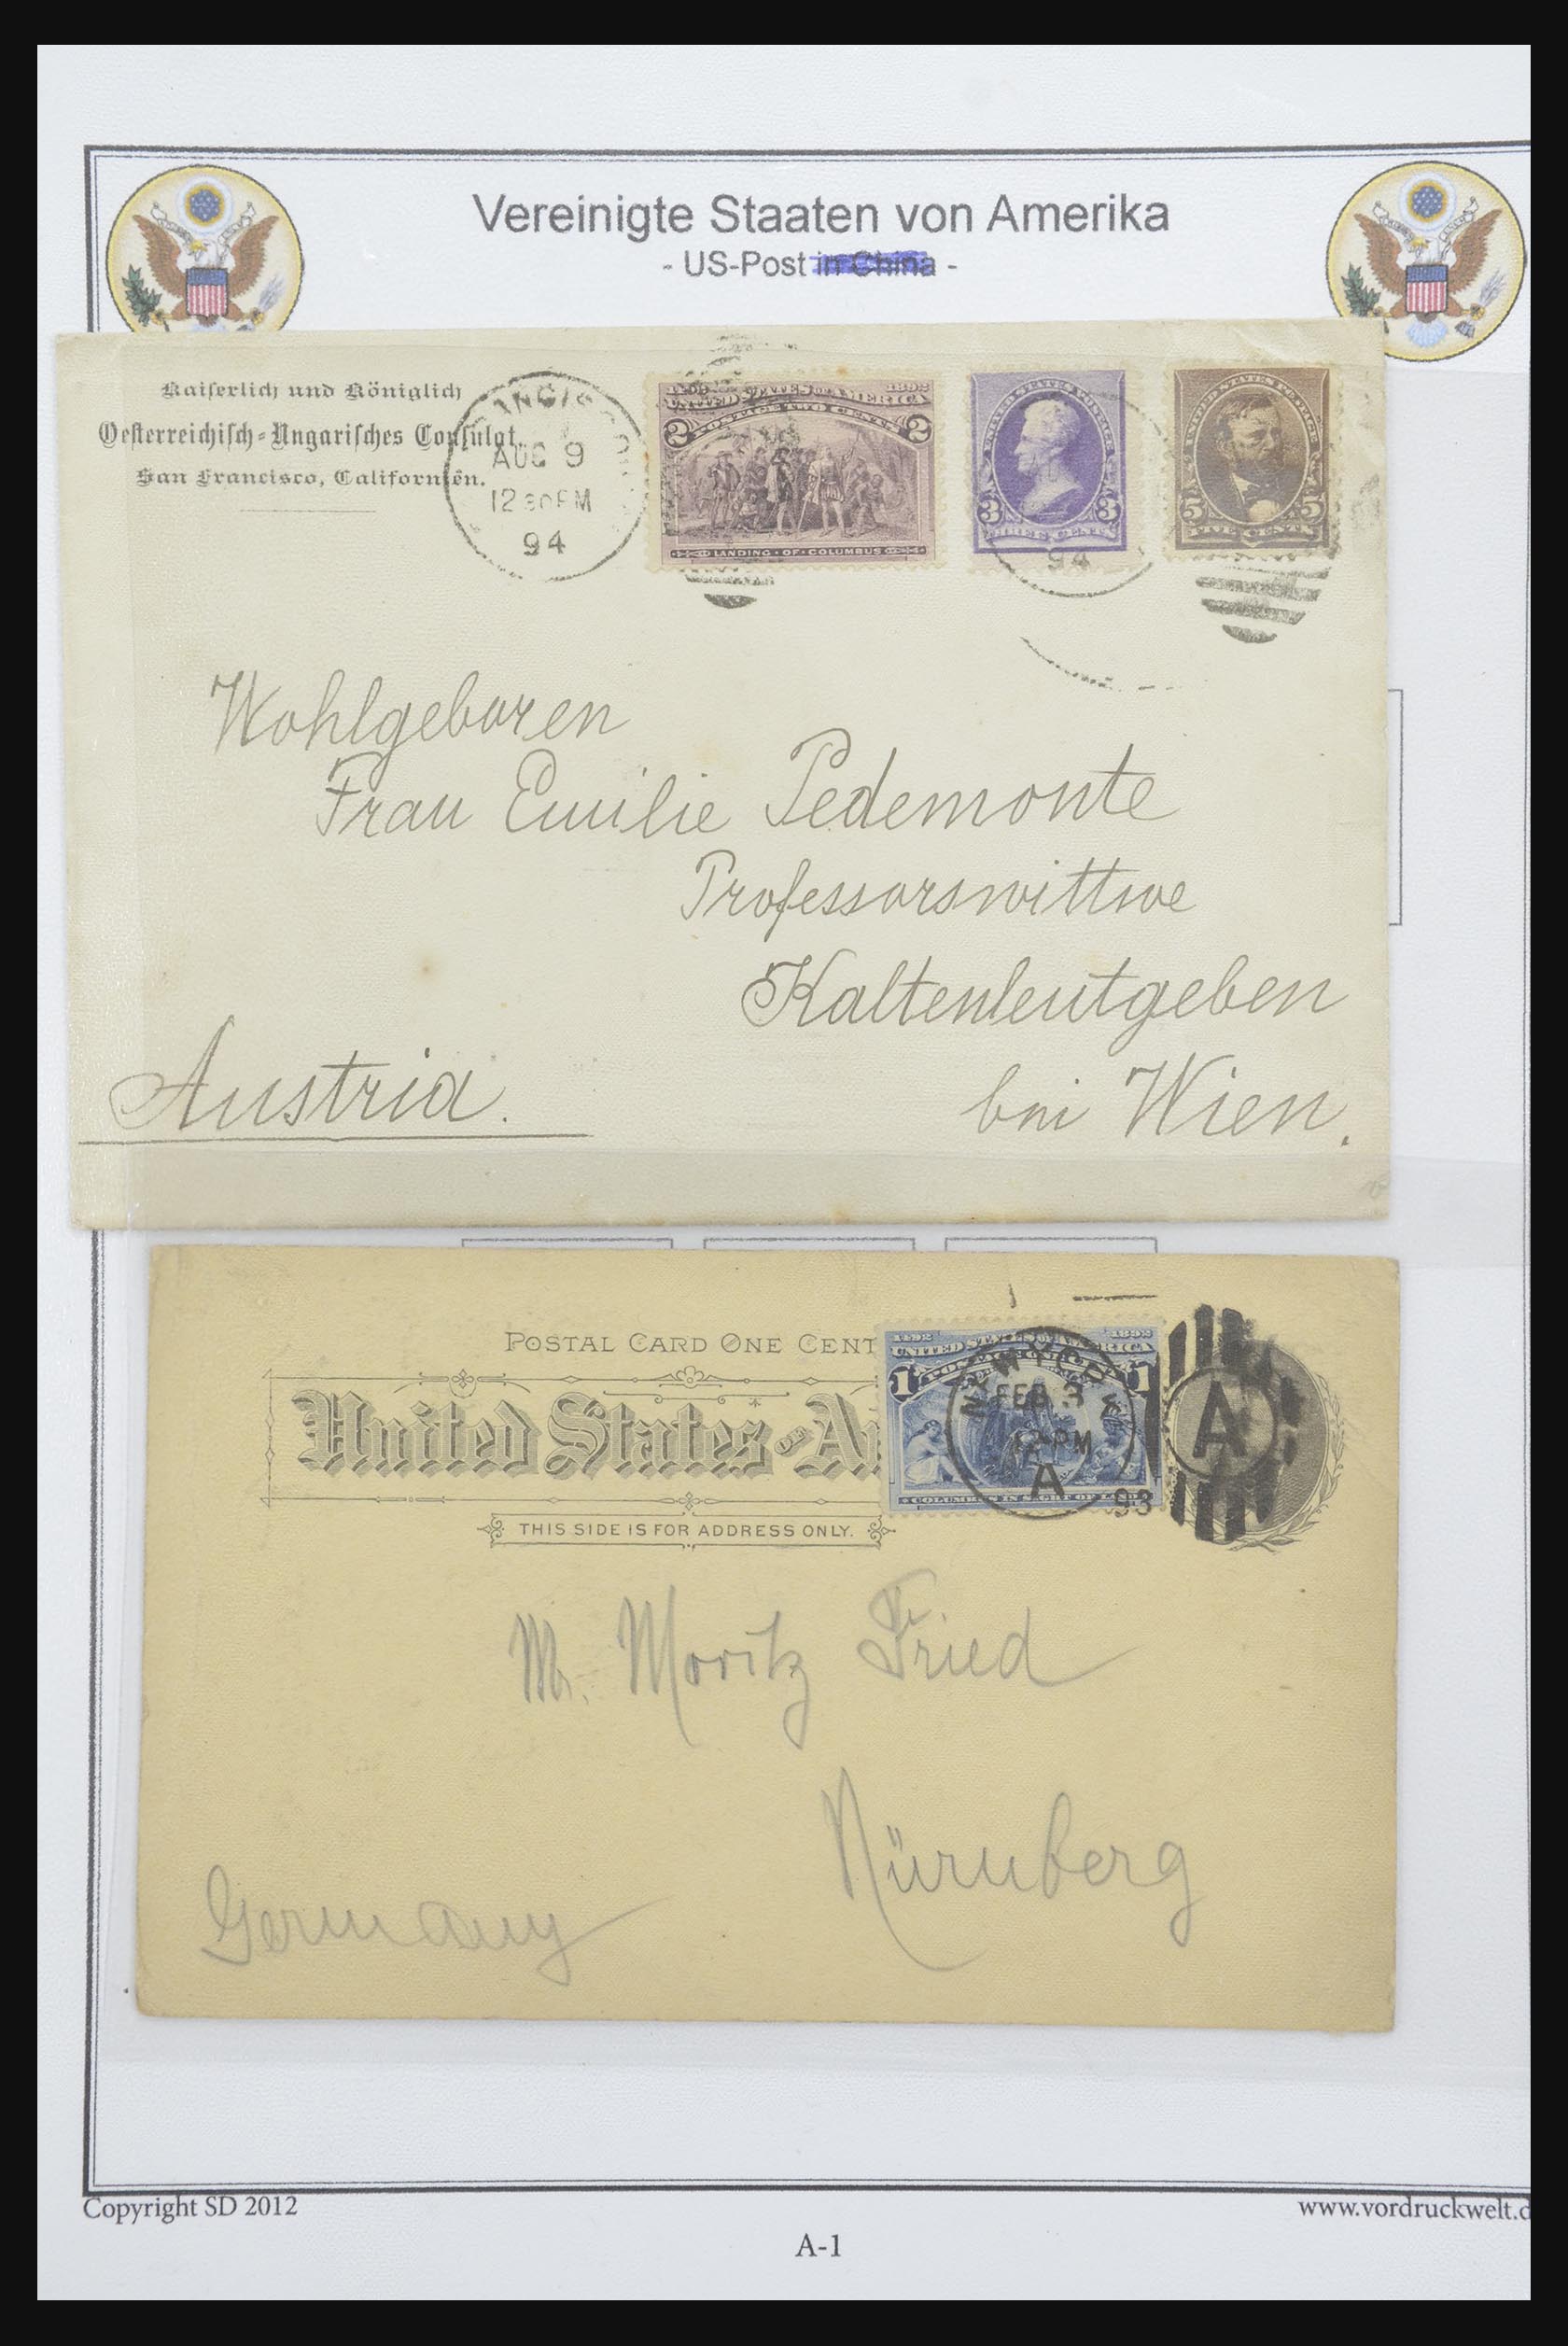 Vereinigte Staaten von Amerika
- US-Post in China -
Kaiserlich und Königlich
Oesterreichisch-Ungarisches Consulat.
San Francisco, Californien.
AUG 9
12 30 PM
94
1492 1892
UNITED STATES OF AMERICA
POSTAGE TWO CENTS
2 2
LANDING · OF · COLUMBUS
UNITED STATES POSTAGE
3 3
THREE CENTS
94
UNITED STATES POSTAGE
5 5
FIVE CENTS
Wohlgeboren
Frau Emilie Pedemonte
Professorswittwe
Kaltenleutgeben
bei Wien.
Austria.
POSTAL CARD ONE CENT
United States of Am
THIS SIDE IS FOR ADDRESS ONLY.
1492 1892
UNITED STATES OF AMERICA
1 1
COLUMBUS IN SIGHT OF LAND
FEB 3
12 PM
A
93
A
Mr. Moritz Fried
Nürnberg
Germany
Copyright SD 2012
www.vordruckwelt.d
A-1